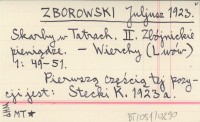 ZBOROWSKI Juljusz 1923.
Skarby w Tatrach. II. Zbójnickie
pieniądze. - Wierchy (Lwów)
1: 49-51.
Pierwszą częścią tej pozy-
cji jest: Stecki K. 1923 a.
MT*